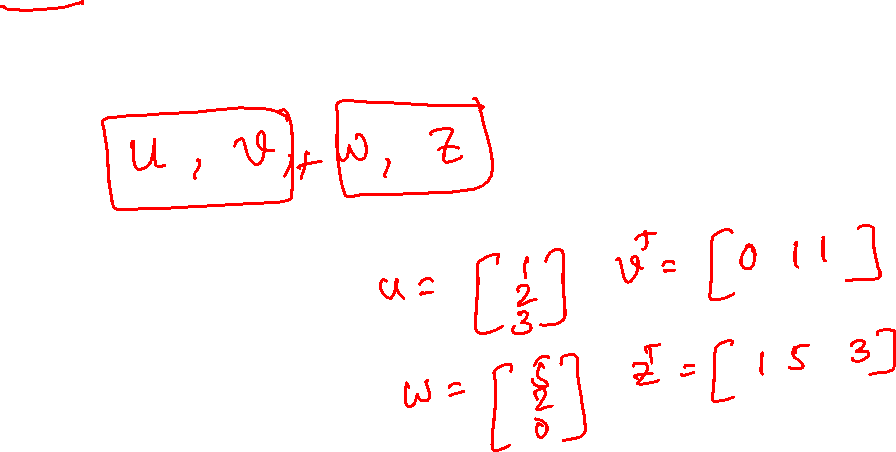 u, v + w, z
u = [1 2 3] vᵀ = [0 1 1]
w = [5 2 0] zᵀ = [1 5 3]